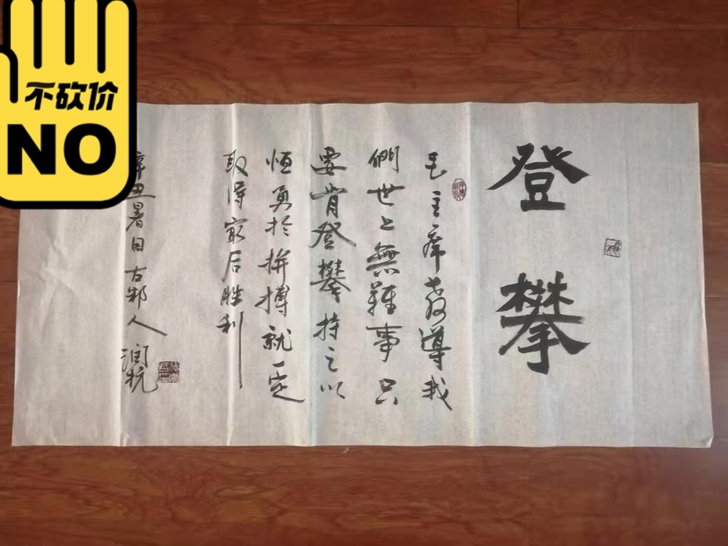 不砍价
NO
登攀
毛主席教導我
們世上無難事只
要肯登攀持之以
恒勇於拚搏就一定
取得最后胜利
辛丑暑日古邾人
润杭